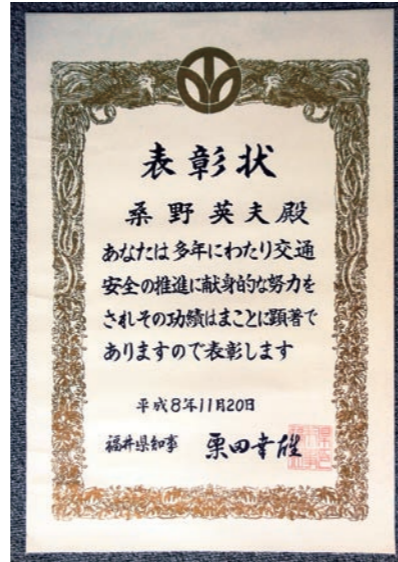 表彰状
桑野英夫殿
あなたは多年にわたり交通
安全の推進に献身的な努力を
されその功績はまことに顕著で
ありますので表彰します
平成8年11月20日
福井県知事 栗田幸雄